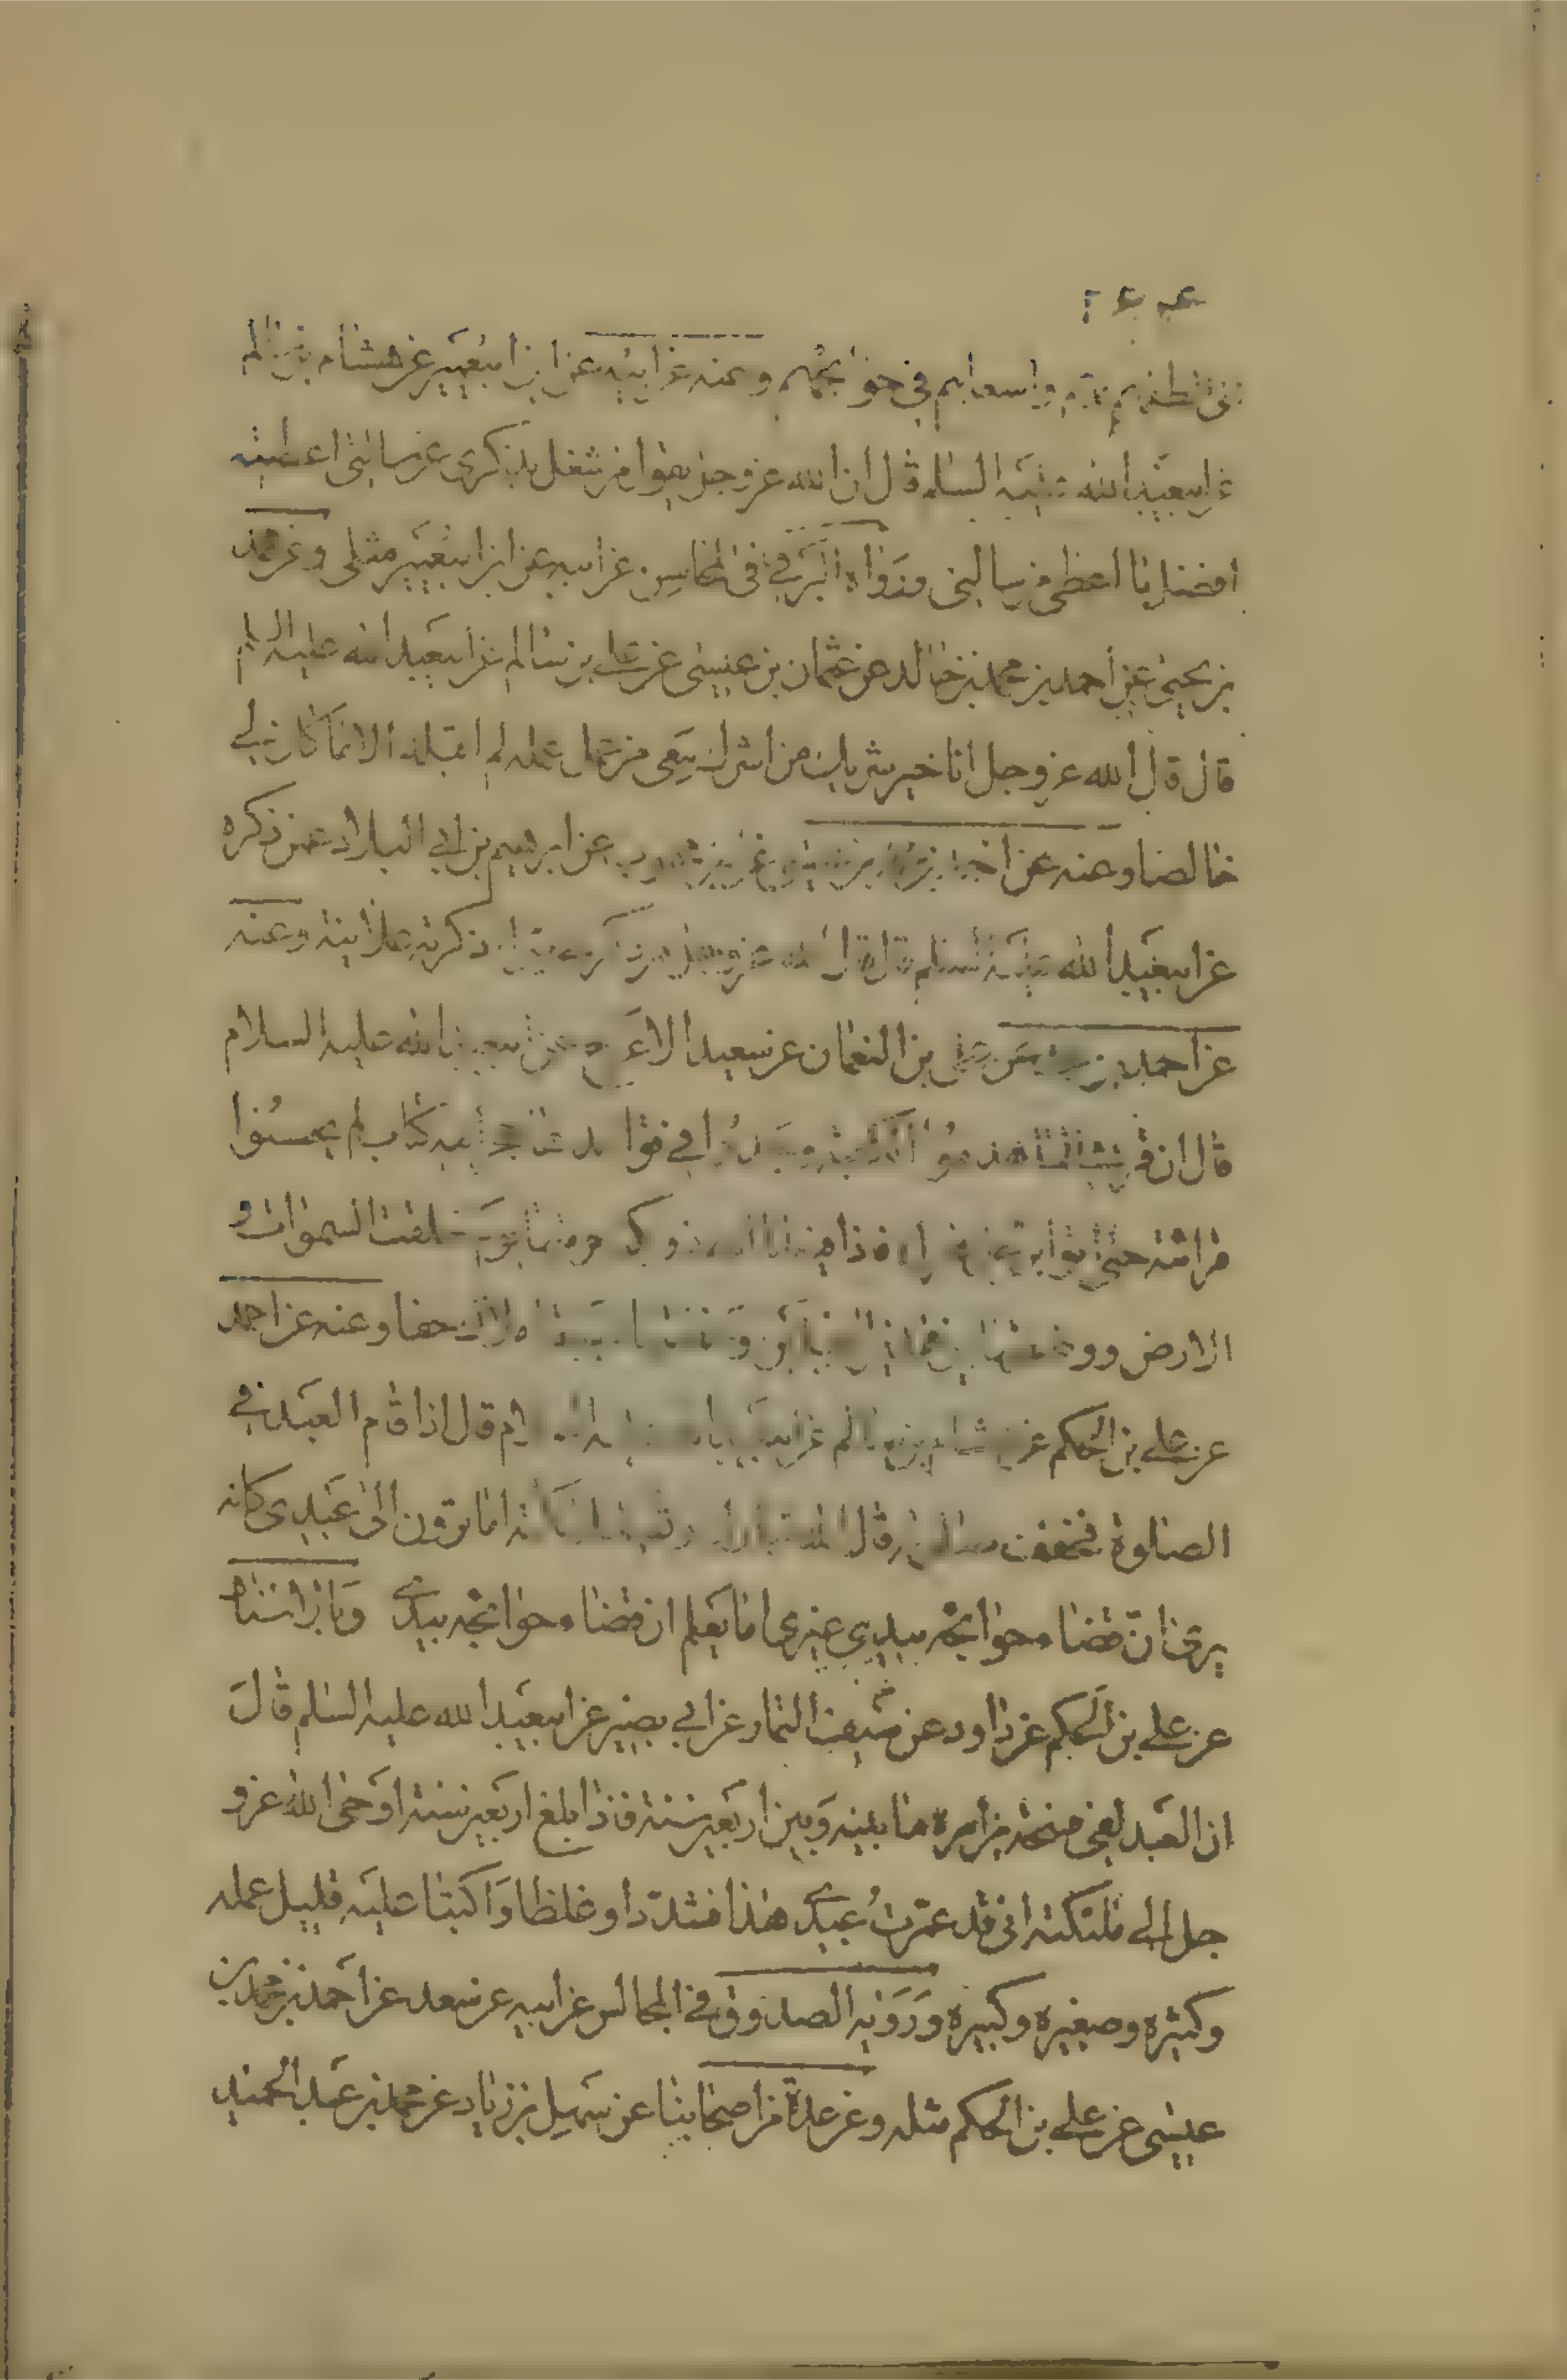 واسعاهم في حوائجهم وعنه عن ابيه عن ابن ابيعمير عن هشام بن سالم
عن ابيعبد الله عليه السلم قال ان الله عز وجل يقول من شغل بذكرى عن مسئلتى اعطيته
افضل ما اعطى من سالنى ورواه البرقي في المحاسن عن ابيه عن ابن ابيعمير مثله وعن محمد
بن يحيى عن احمد بن محمد بن خالد عن عثمان بن عيسى عن على بن سالم عن ابيعبد الله عليه السلام
قال قال الله عز وجل انا خير شريك من اشرك معى من عمل عمله لم اقبله الا ما كان لي
خالصا وعنه عن عن ابرهيم بن ابي البلاد عمن ذكره
عن ابيعبد الله عليه السلم قال قال الله عز وجل من ذكرته علانية وعنه
عن احمد بن عن على بن النعمان عن سعيد الاعرج عن ابيعبد الله عليه السلام
قال ان قريشا لما هدموا الكعبة وجدوا في قواعده كتاب لم يحسنوا
قرائته حتى فاذا فيه انا الله ذو بكة خلقت السموات و
الارض حفا وعنه عن احمد
عن على بن الحكم عن هشام بن سالم عن ابيعبد الله عليه السلام قال اذا قام العبد في
الصلوة فخفف صلاته قال الله تبارك وتعالى لملائكته اما ترون الى عبدى كانه
يرى ان قضاء حوائجه بيدي غيرى اما يعلم ان قضاء حوائجه بيدي وبالاسناد
عن على بن الحكم عن داود عن سيف التمار عن ابي بصير عن ابيعبد الله عليه السلم قال
ان العبد لفى فسحة من امره ما بينه وبين اربعين سنة فاذا بلغ اربعين سنة اوحى الله عز و
جل الى ملئكته انى قد عمرت عبدي هذا فشددا وغلظا واكتبا عليه قليل عمله
وكثيره وصغيره وكبيره ورواه الصدوق في المجالس عن ابيه عن سعد عن احمد بن محمد بن
عيسى عن على بن الحكم مثله وعن عدة من اصحابنا عن سهيل بن زياد عن محمد بن عبد الحميد